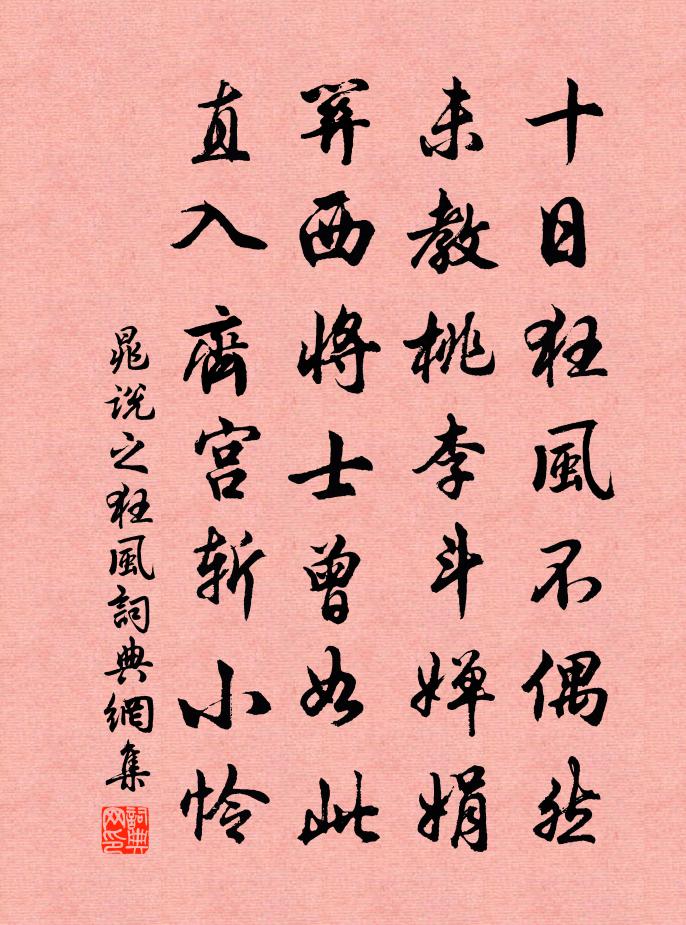 十日狂風不偶然
未教桃李斗嬋娟
關西將士曾如此
直入齊宮斬小怜
晁說之狂風詞典網集
詞典网印